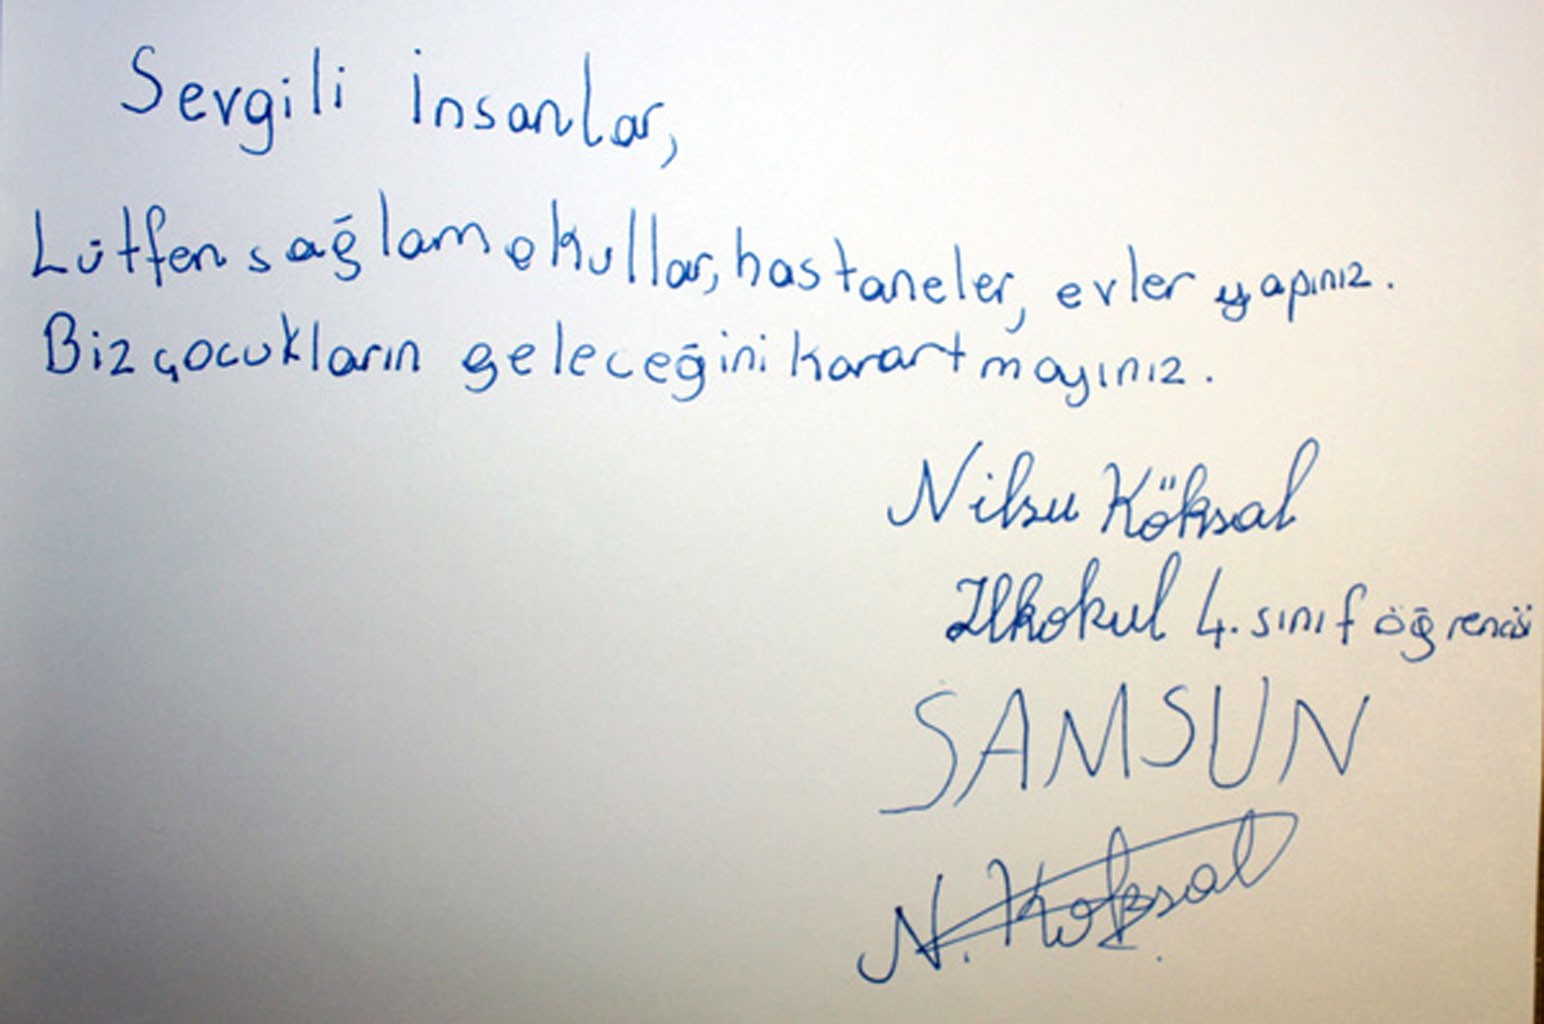 Sevgili İnsanlar,
Lütfen sağlam okullar, hastaneler, evler yapınız.
Biz çocukların geleceğini karartmayınız.
Nilsu Köksal
İlkokul 4. sınıf öğrencisi
SAMSUN
N. Köksal